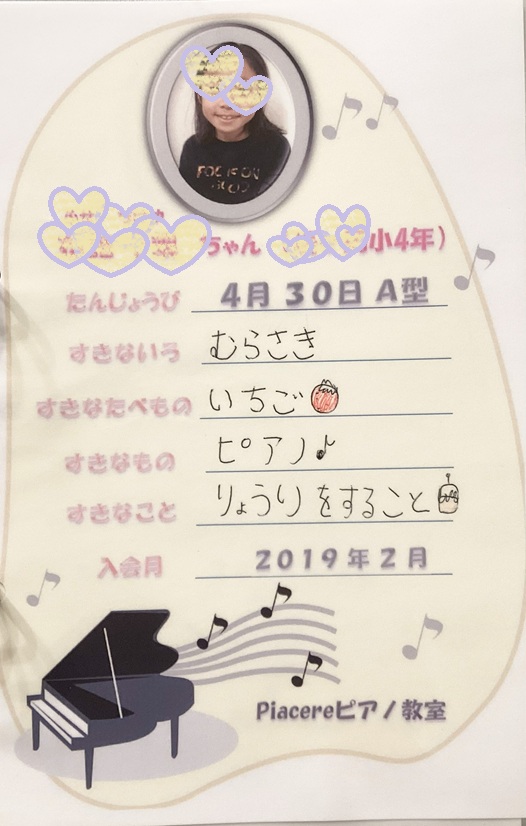 ちゃん 小4年）
たんじょうび 4月30日 A型
すきないろ むらさき
すきなたべもの いちご
すきなもの ピアノ♪
すきなこと りょうりをすること
入会月 2019年2月
Piacereピアノ教室